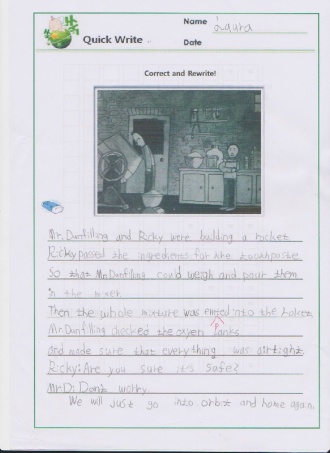 Quick Write
Name Laura
Date
Correct and Rewrite!
Mr. Dunfilling and Ricky were building a rocket
Ricky passed the ingredients for the toothpaste
So that Mr. Dunfilling could weigh and pour them
in the mixer.
Then the whole mixture was into the rocket
Mr. Dunfilling checked the oxyen Tanks
and made sure that everything was airtight
Ricky: Are you sure it's safe?
Mr D: Don't worry
We will just go into orbit and home again.